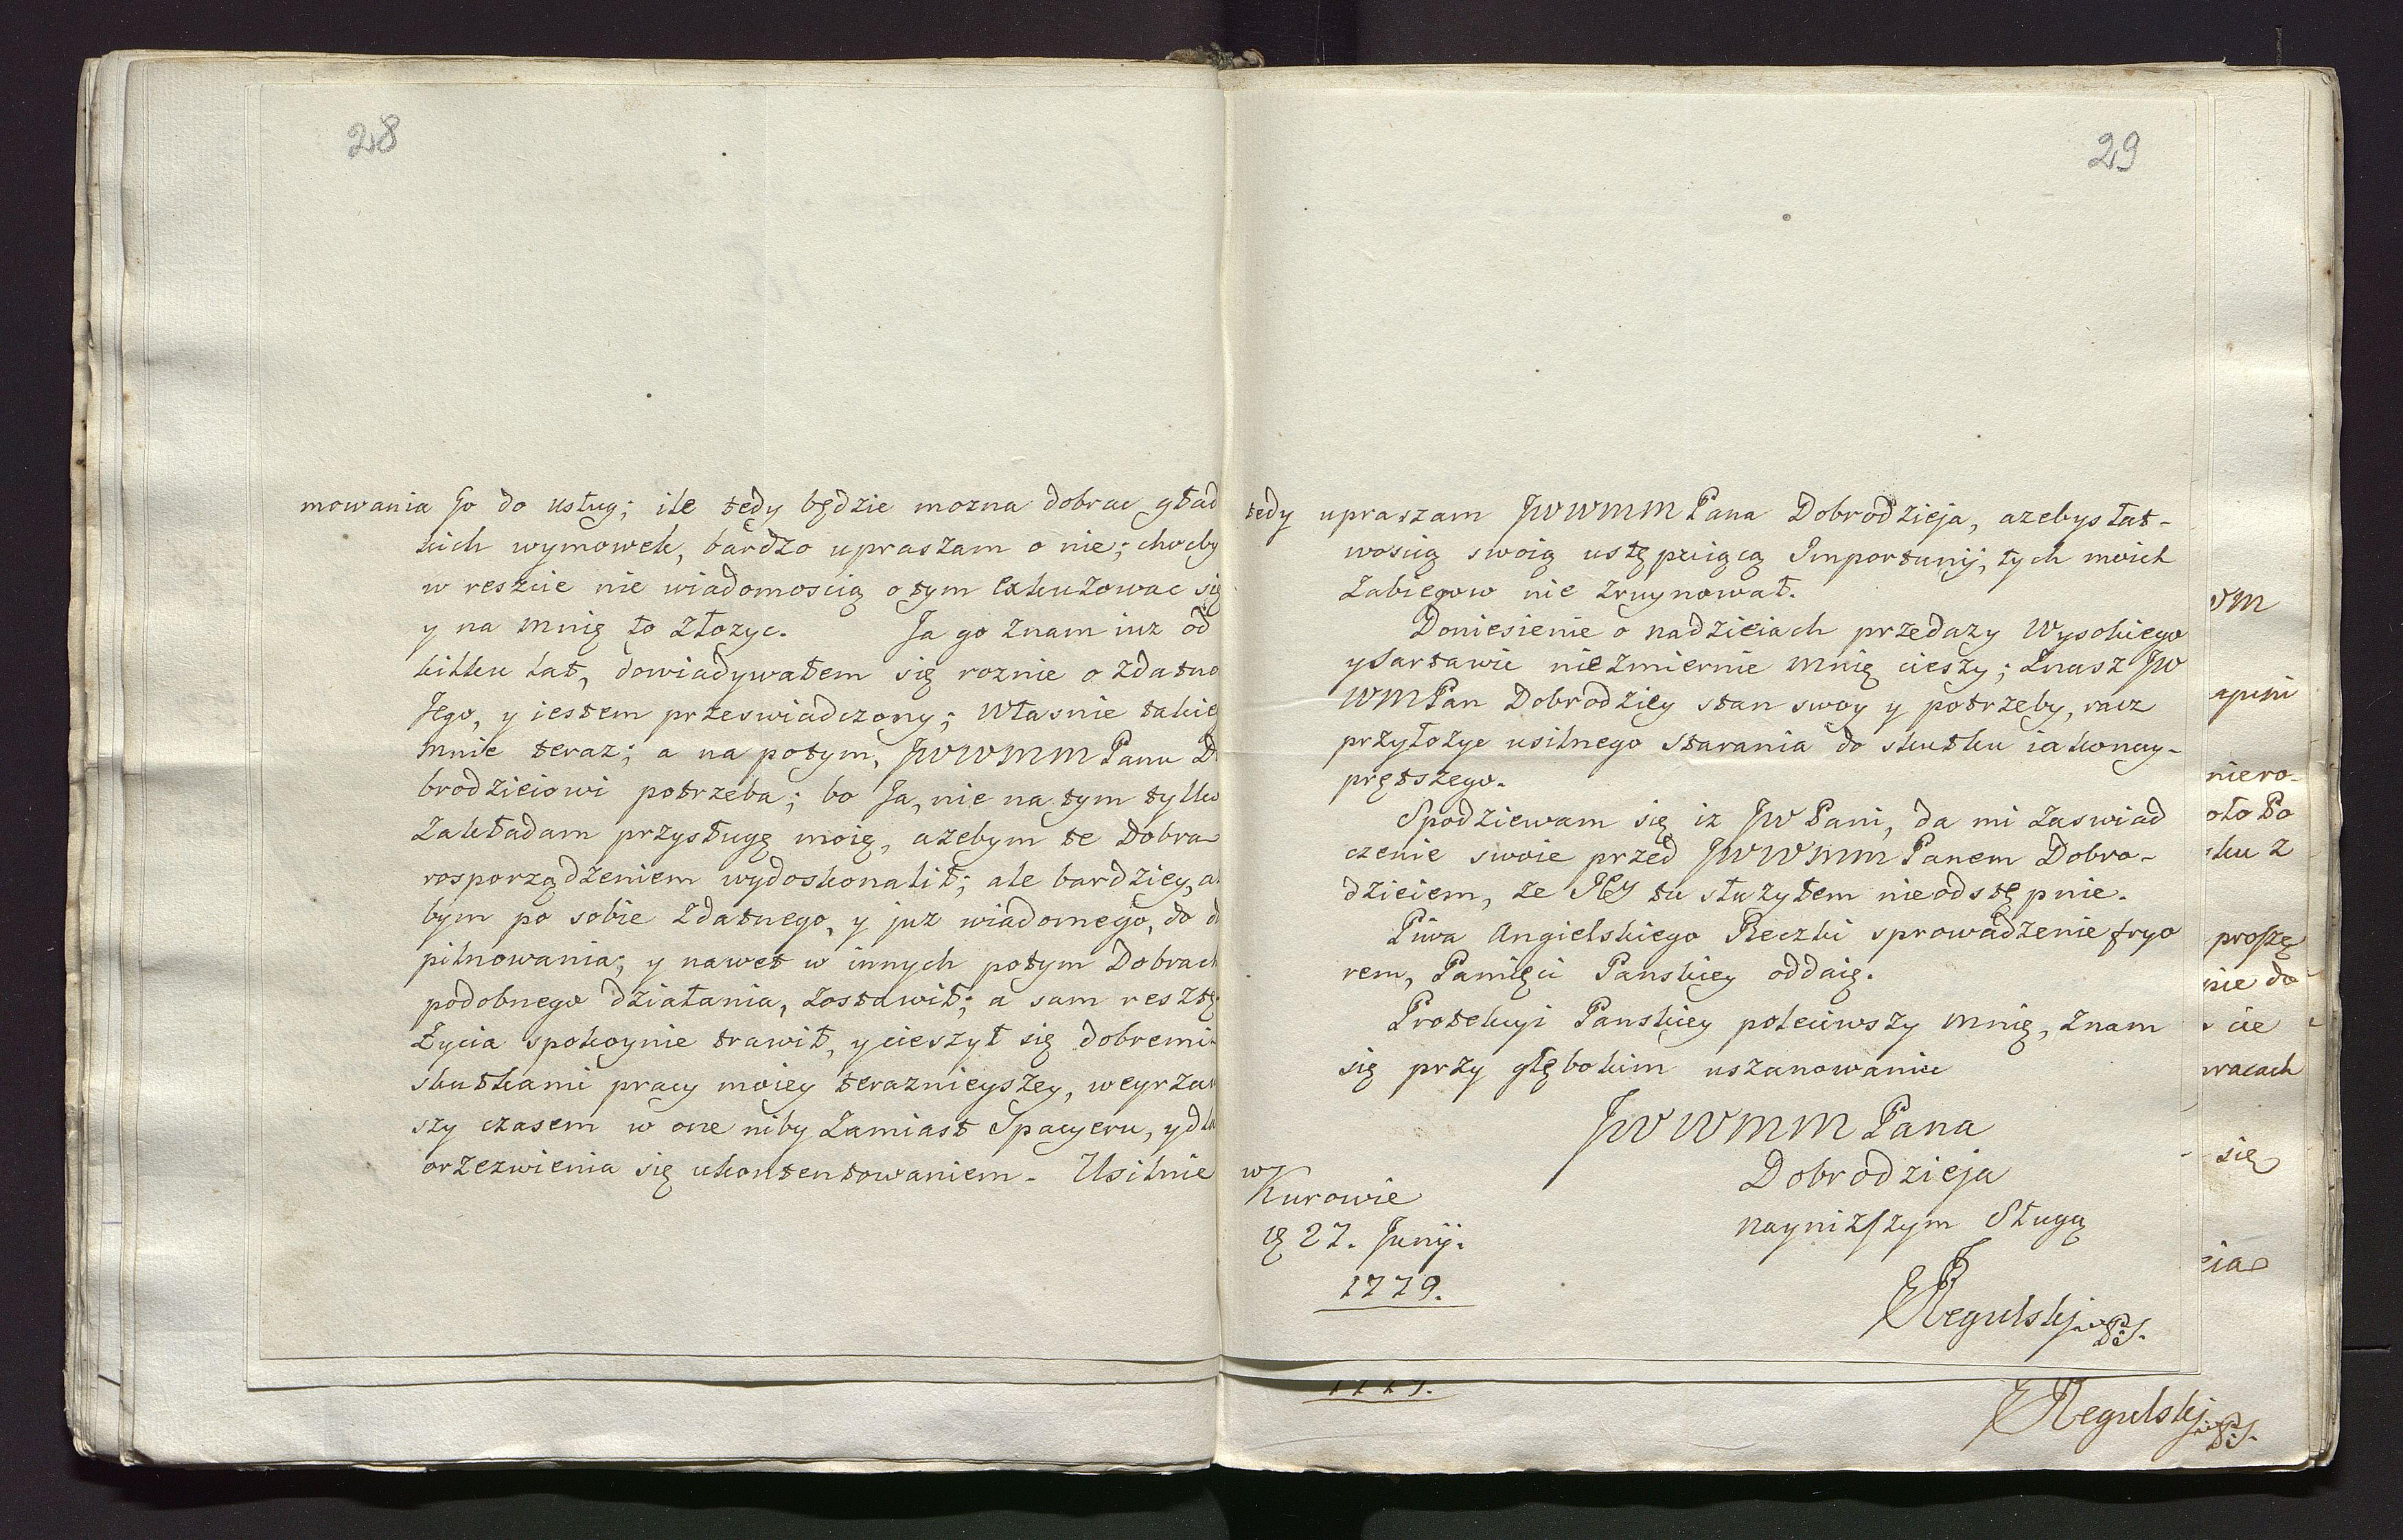 28
mowania Jo do usług; ile tedy będzie mozna dobrac gład
kich wymowek, bardzo upraszam o nie; chocby
w reszcie nie wiadomoscią o tym exkuzowac się
y na mnię to złozyc. Ja go znam iuz od
kilku lat, dowiadywałem się roznie o zdatno
Jego, y iestem przeswiadczony; własnie takie
mnie teraz; a na potym, JWWMM Panu D
brodzieiowi potrzeba; bo Ja, nie na tym tylko
zakładam przysługę moię, azebym te Dobra
rosporządzeniem wydoskonalił; ale bardziey, a
bym po sobie zdatnego, y juz wiadomego, do d
pilnowania; y nawet w innych potym Dobrach
podobnego działania, zostawił; a sam resztę
Zycia spokoynie trawił, y cieszył się dobremi
skutkami pracy moiey teraznieyszey, weyrzaw
szy czasem w one niby zamiast Spacyeru, y dla
orzezwienia się ukontentowaniem. Usilnie
29
tedy upraszam JWWMM Pana Dobrodzieja, azebys łat-
woscią swoią ustępuiącą Importunij, tych moich
zabiegow nie zruynował.
Doniesienie o nadzieiach przedazy Wysokiego
y Sartawic niezmiernie mnię cieszy; znasz JW
WMPan Dobrodziey stan swoy y potrzeby, racz
przyłozyc usilnego starania do skutku iakonay-
prętszego.
Spodziewam się iz JW Pani, da mi zaswiad
czenie swoie przed JWWMM Panem Dobro-
dzieiem, ze Jey tu słuzyłem nieodstępnie.
Piwa Angielskiego Beczki sprowadzenie fryo
rem, Pamięci Panskiey oddaię.
Protekcyi Panskiey poleciwszy mnię, znam
się przy głębokim uszanowaniu
JWWMM Pana
Dobrodzieja
nayniższym Sługą
w Kurowie
27. Junij.
1779.
Regulskj
vM
niero-
oto Po
sku z
proszę
nie do
cie
pracach
się
cia
Regulskj